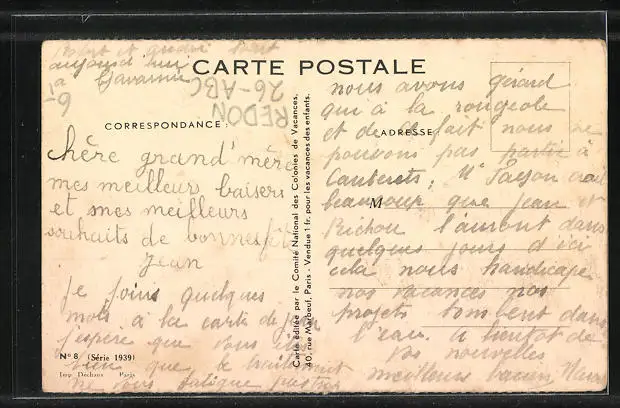 aujourd'hui
à Gavarnie
CARTE POSTALE
REDON
26-ABC
CORRESPONDANCE:
ADRESSE
M
chère grand'mère
mes meilleurs baisers
et mes meilleurs
souhaits de bonne fête
Jean
Je joins quelques
mots à la carte de Jean
j'espère que vous
bien que le traitement
ne vous fatigue pas trop
N° 8 (Série 1939)
Imp. Déchaux Paris
Carte éditée par le Comité National des Colonies de Vacances,
40, rue Marbeuf, Paris - Vendue 1 fr. pour les vacances des enfants.
nous avons gérard
qui a la rougeole
et de ce fait nous ne
pouvons pas partir à
Cauterets; Mr croit
beaucoup que jean et
Pichou l'auront dans
quelques jours d'ici
cela nous handicape
nos vacances nos
projets tombent dans
l'eau. A bientôt de
vos nouvelles
meilleurs baisers